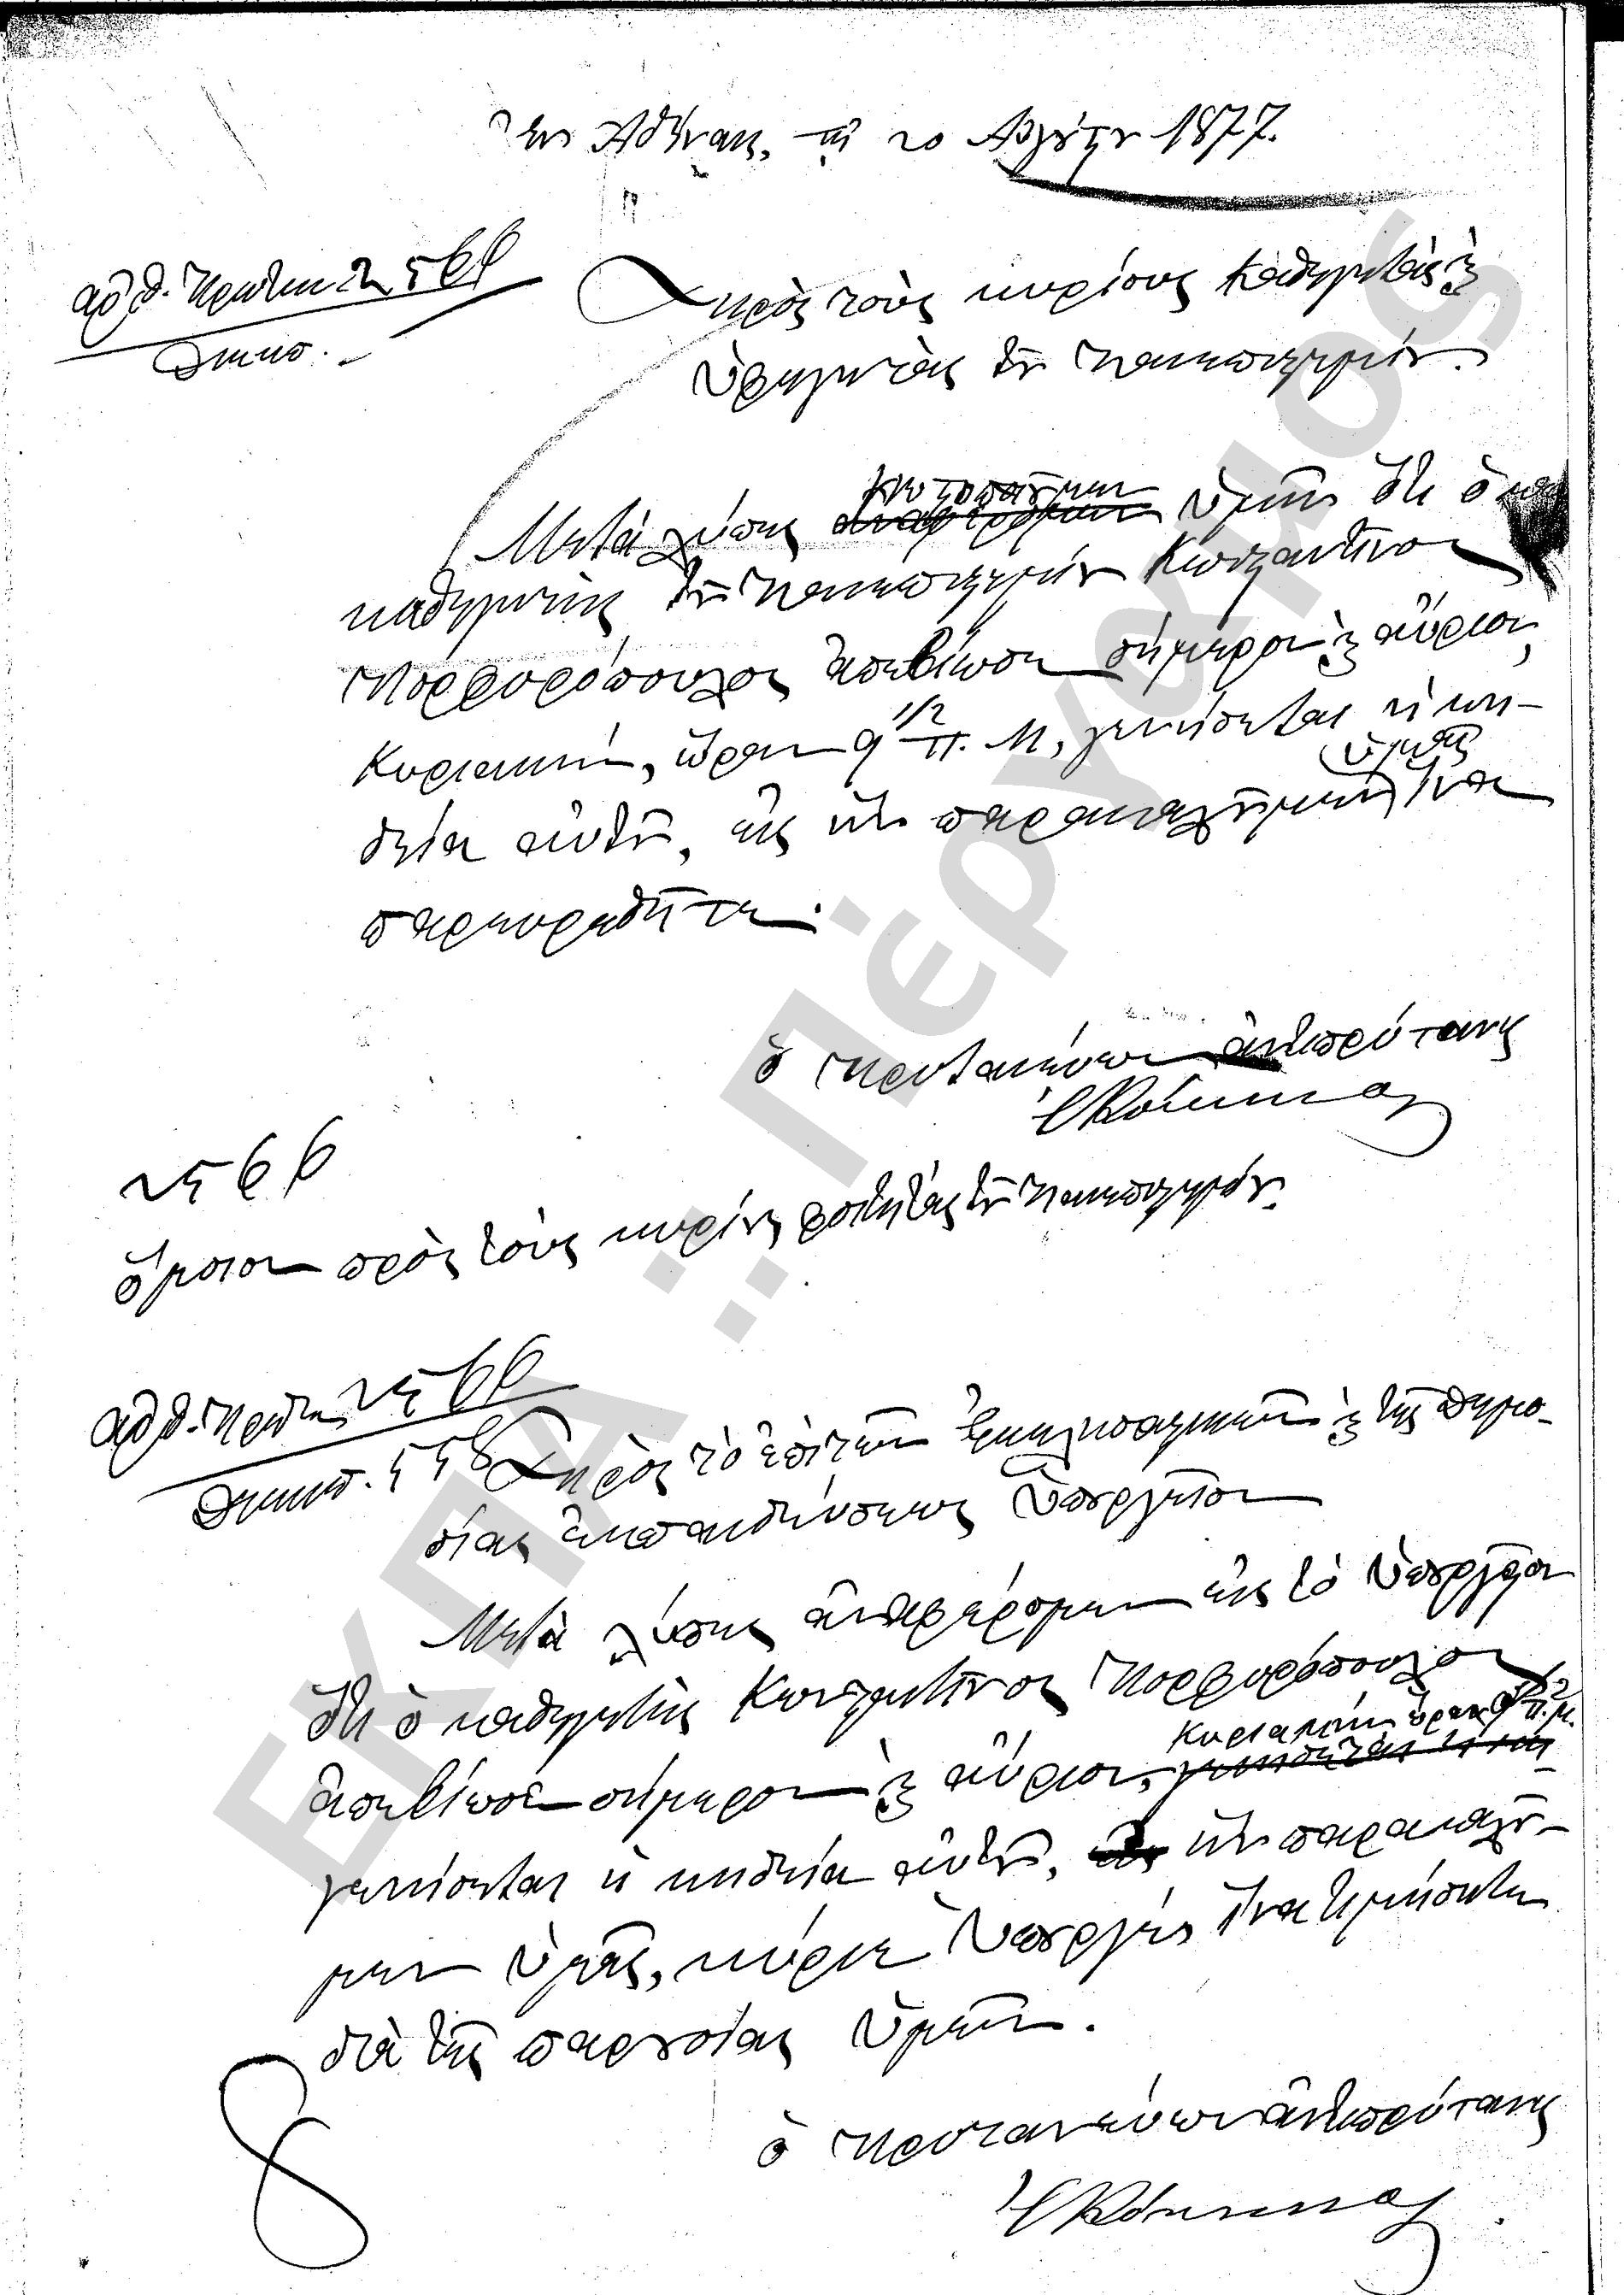 Ἐν Ἀθήναις, τῇ 20 Αὐγούστου 1877.
ἀρ.θ. Πρωτ.
Διεκπ.
Πρὸς τοὺς κυρίους καθηγητὰς κ
ὑφηγητὰς τοῦ Πανεπιστημίου.
Μετὰ λύπης γνωστοποιοῦμεν ὑμῖν ὅτι ὁ
καθηγητὴς τοῦ Πανεπιστημίου Κωνσταντῖνος
Πορφυρόπουλος ἀπεβίωσε σήμερον κ αὔριον,
Κυριακὴν, ὥραν 9 1/2 π. μ, γενήσεται ἡ κη-
δεία αὐτοῦ, εἰς ἣν παρακαλοῦμεν ὑμᾶς ἵνα
παρευρεθῆτε.
ὁ πρυτανεύων ἀντιπρύτανις
2566
ὅμοιον πρὸς τοὺς κυρίους φοιτητὰς τοῦ Πανεπιστημίου.
ἀρ.θ. Πρωτ. 2566
Διεκπ.
Πρὸς τὸ ἐπὶ τῶν Ἐκκλησιαστικῶν κ τῆς Δημο-
σίας ἐκπαιδεύσεως Ὑπουργεῖον
Μετὰ λύπης ἀναφέρομεν εἰς τὸ Ὑπουργεῖον
ὅτι ὁ καθηγητὴς Κωνσταντῖνος Πορφυρόπουλος
ἀπεβίωσε σήμερον κ αὔριον, Κυριακὴν ὥραν 9 1/2 π.μ.
γενήσεται ἡ κηδεία αὐτοῦ, ἣν παρακαλοῦ-
μεν ὑμᾶς, κύριε Ὑπουργέ, ἵνα τιμήσητε
διὰ τῆς παρουσίας ὑμῶν.
ὁ πρυτανεύων ἀντιπρύτανις
8
ΕΚΠΑ :: Πέργαμος